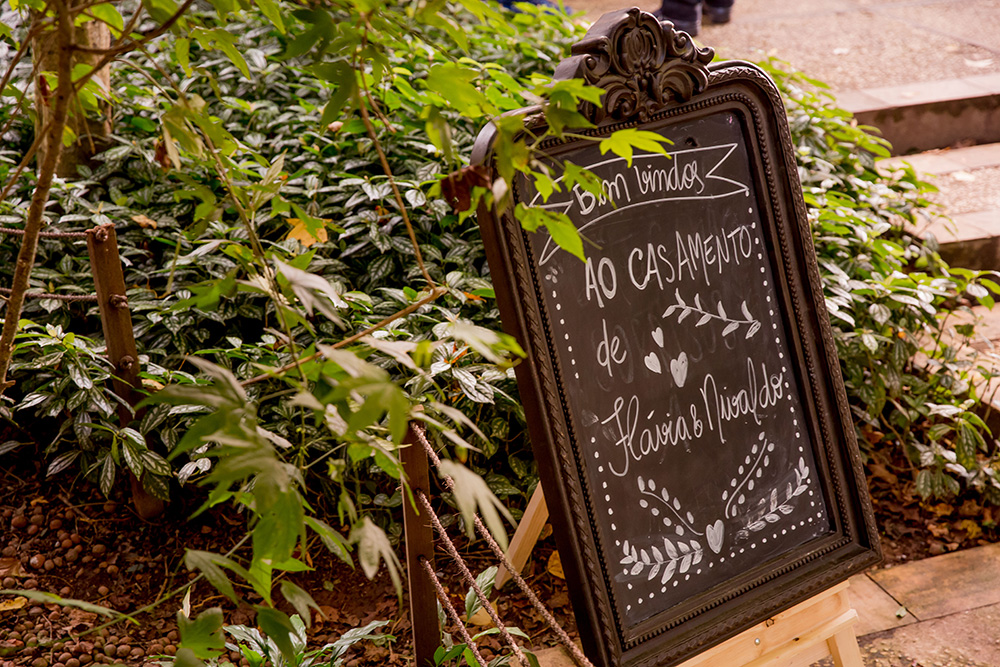 Bem Vindos
AO CASAMENTO
de
Flávia & Nivaldo